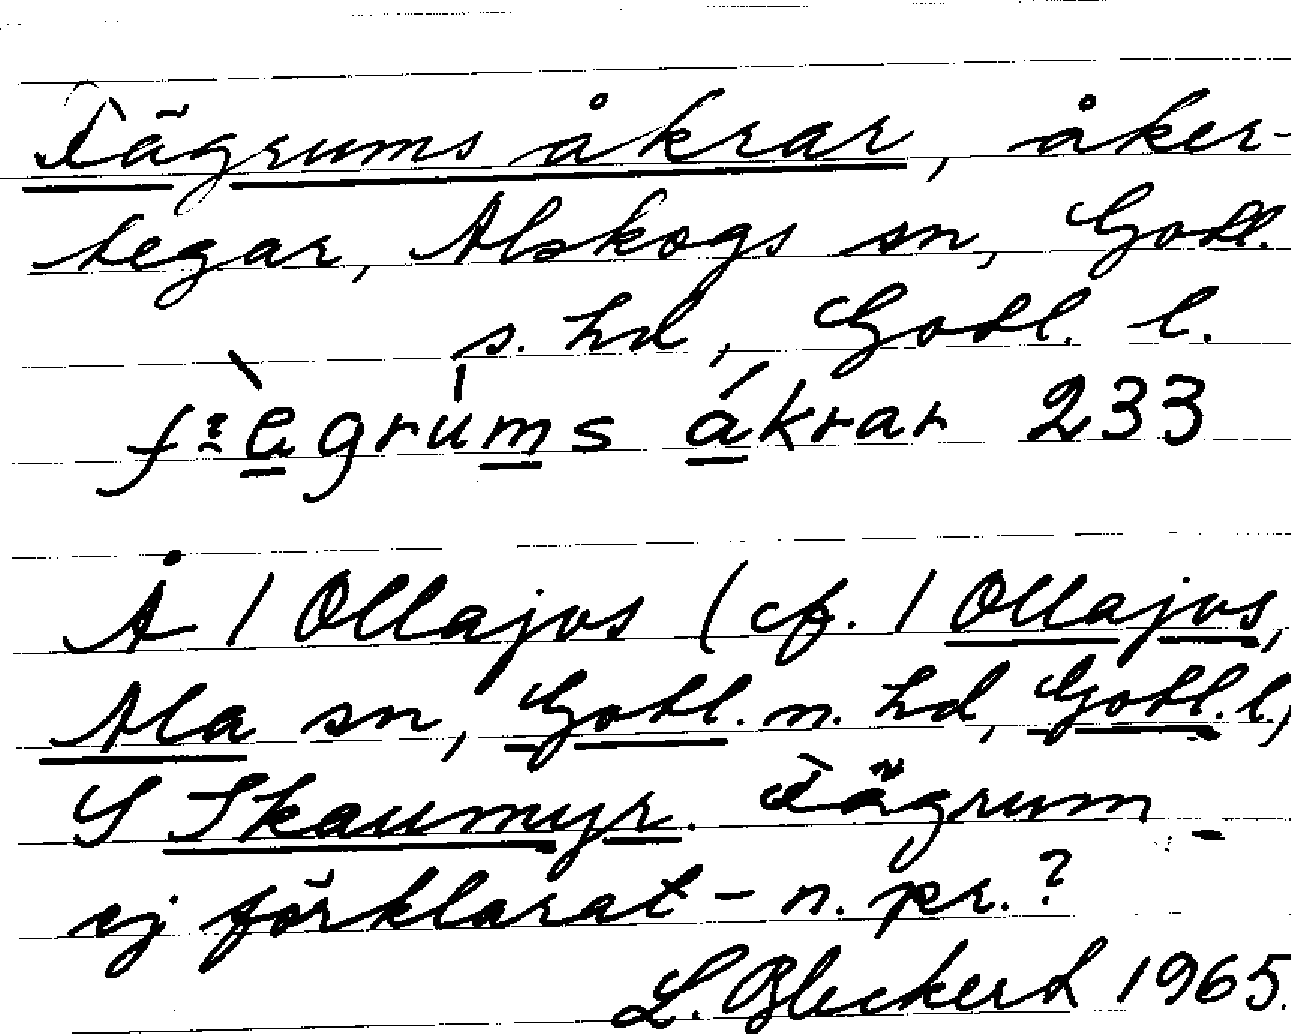 Fägrums åkrar, åker-
tegar, Alskogs sn, Gotl.
s. hd, Gotl. l.
fægrums åkrar 233
Å / Ollajvs (cf. / Ollajvs,
Ala sn, Gotl. n. hd, Gotl. l)
S Skaumyr. Fägrum
ej förklarat – n. pr.?
L. Bleckert 1965.